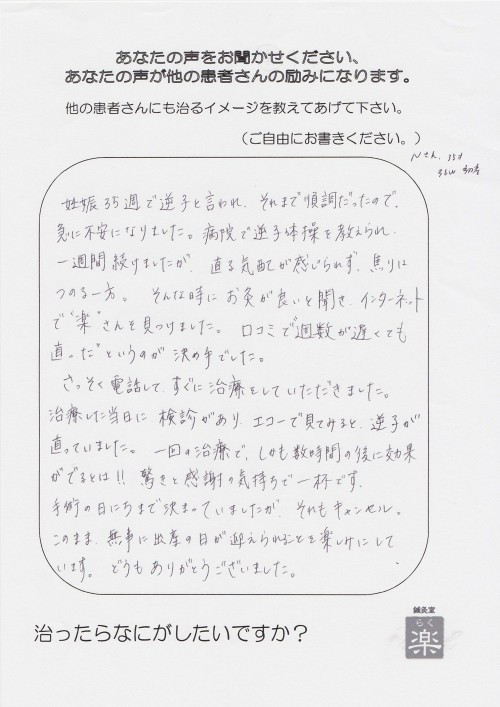 あなたの声をお聞かせください、
あなたの声が他の患者さんの励みになります。
他の患者さんにも治るイメージを教えてあげて下さい。
(ご自由にお書きください。)
Nさん 35才
36w 初産
妊娠35週で逆子と言われ、それまで順調だったので、
急に不安になりました。病院で逆子体操を教えられ、
一週間続けましたが、直る気配が感じられず、焦りは
つのる一方。そんな時にお灸が良いと聞き、インターネット
で“楽”さんを見つけました。口コミで“週数が遅くても
直った”というのが決め手でした。
さっそく電話して、すぐに治療をしていただきました。
治療した当日に検診があり、エコーで見てみると、逆子が
直っていました。一回の治療で、しかも数時間の後に効果
がでるとは!!驚きと感謝の気持ちで一杯です。
手術の日にちまで決まっていましたが、それもキャンセル。
このまま、無事に出産の日が迎えられることを楽しみにして
います。どうもありがとうございました。
治ったらなにがしたいですか?
鍼灸室
らく
楽